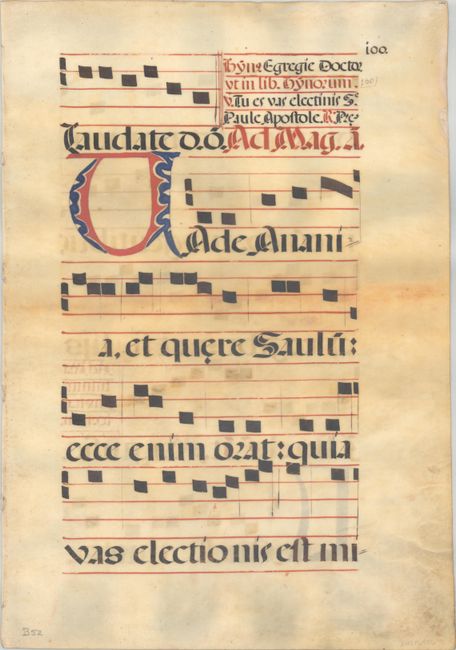 100.
Hỹnꝰ Egregie Doctor
vt in lib. Hỹnorum.
V. Tu es vas electinis S.
Paule Apostole. R. Prę-
Laudate d. ō. Ad Mag. ā.
VAde Anani-
a, et quęre Saulū:
ecce enim orat: quia
vas electionis est mi-
B52